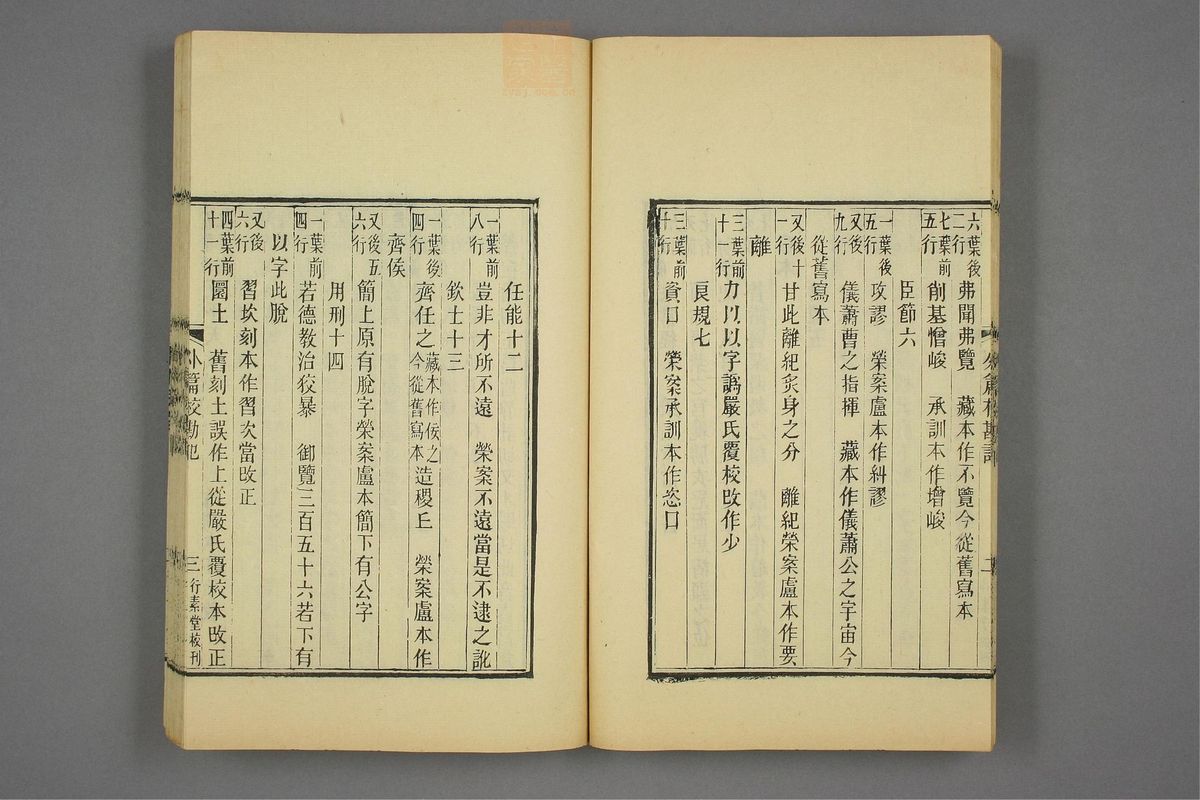 六葉後二行 弗聞弗覽 藏本作不覽今從舊寫本
七葉前五行 削基憎峻 承訓本作增峻
臣節六
一葉後五行 攻謬 榮案盧本作糾謬
又後九行 儀蕭曹之指揮 藏本作儀蕭公之宇宙今
從舊寫本
又後十一行 甘此離紀炙身之分 離紀榮案盧本作要
離
三葉前十一行 力以以字譌嚴氏覆校改作少
良規七
三葉前十行 資口 榮案承訓本作恣口
外篇校勘記
二
任能十二
一葉前八行 豈非才所不遠 榮案不遠當是不逮之訛
欽士十三
一葉後四行 齊任之藏本作侯之今從舊寫本造稷丘 榮案盧本作
齊侯
又後五六行 簡上原有脫字榮案盧本簡下有公字
用刑十四
一葉前四行 若德教治狡暴 御覽三百五十六若下有
以字此脫
又後六行 習坎刻本作習次當改正
四葉前十一行 圜土 舊刻土誤作上從嚴氏覆校本改正
外篇校勘記
三 行素堂校刊